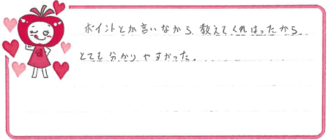 ポイントとか言いながら、教えてくれはったから
とても分かりやすかった。